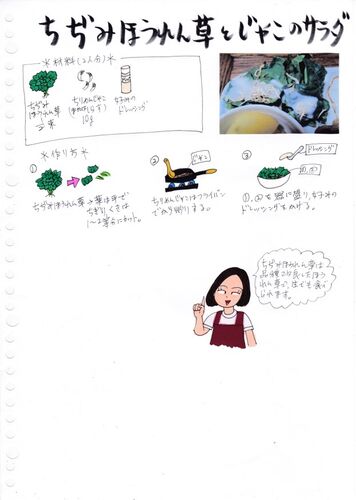 ちぢみほうれん草とじゃこのサラダ
*材料(2人分)*
ちぢみ
ほうれん草
ちりめんじゃこ
10g
お好みの
ドレッシング
*作り方*
①
ちぢみほうれん草の葉は手で
ちぎり、くきは
1〜2等分にカット。
②
じゃこ
ちりめんじゃこはフライパン
でから炒りする。
③
ドレッシング
①、②を器に盛り、お好みの
ドレッシングをかける。
ちぢみほうれん草は
品種改良したほう
れん草で、生でも食べ
られます。